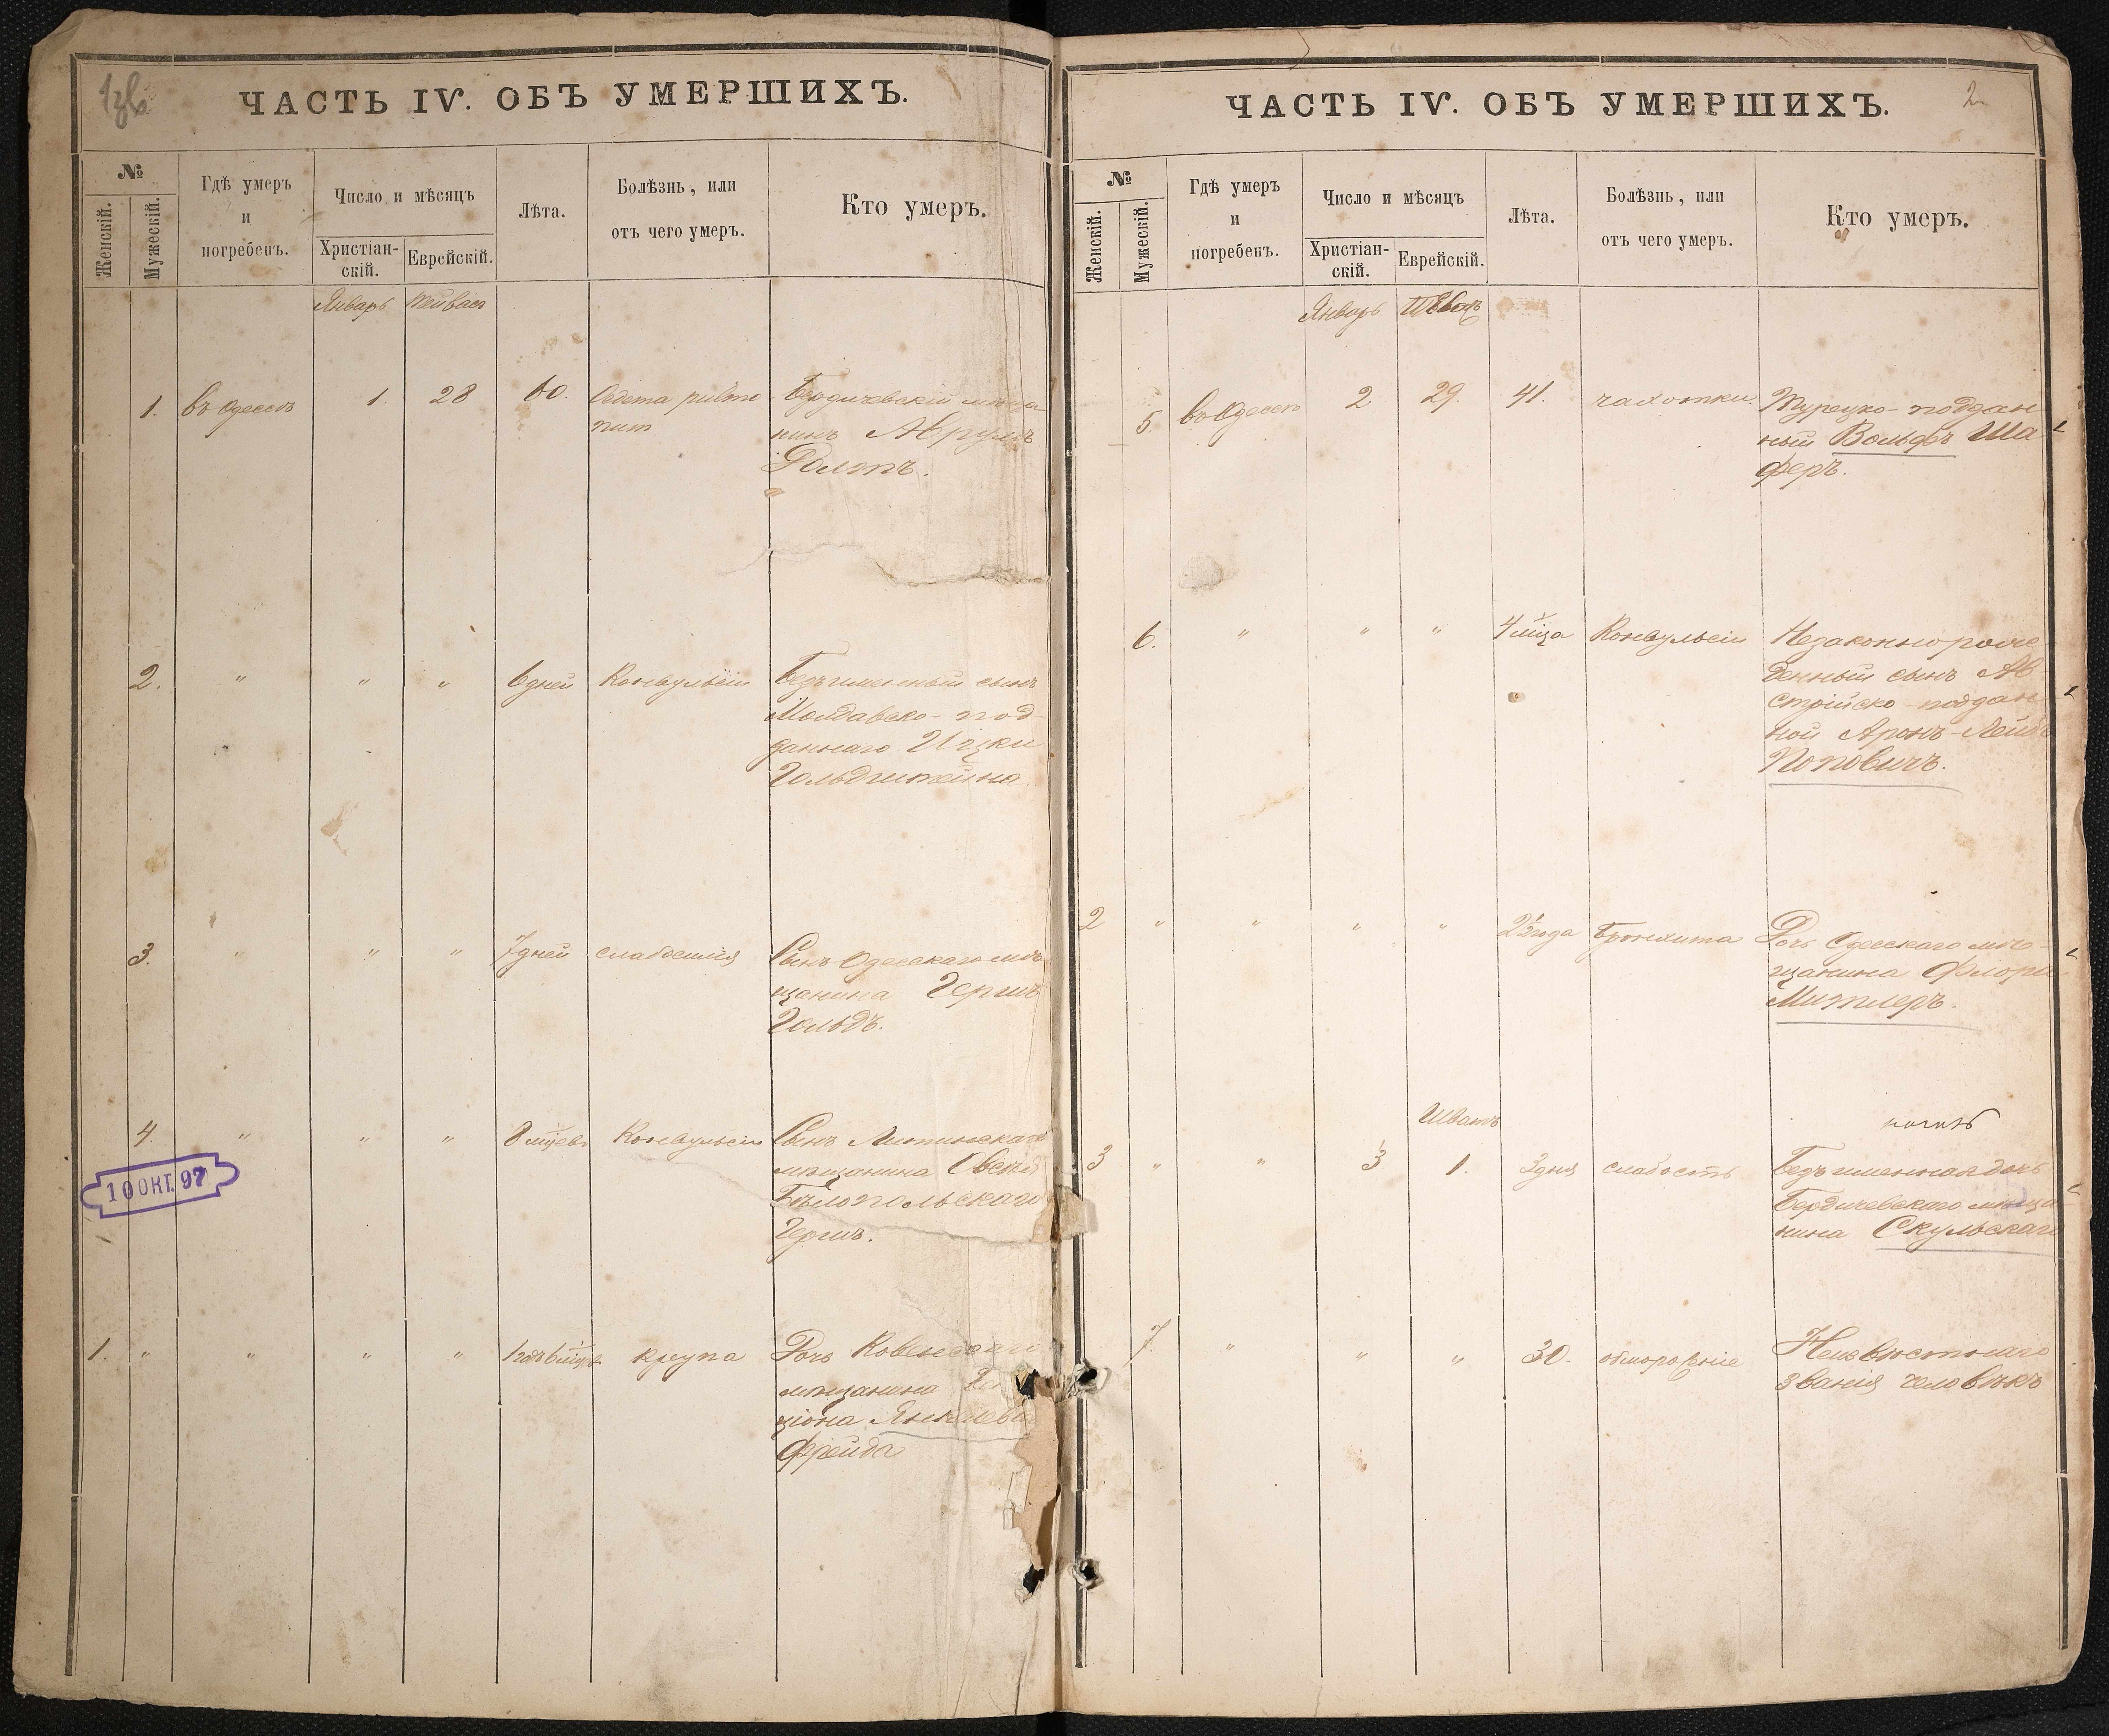 ЧАСТЬ IV. ОБЪ УМЕРШИХЪ.
№
Женскій.
Мужескій.
Гдѣ умеръ
и
погребенъ.
Число и мѣсяцъ
Христіан-
скій.
Еврейскій.
Лѣта.
Болѣзнь, или
отъ чего умеръ.
Кто умеръ.
Январь
1. въ Одессѣ 1 28 60. Oedema pulmo Бердичевскій мѣща
нинъ Аврумъ
2. " " " 6 дней Конвульсіи Безъименный сынъ
Молдавско-под
даннаго Ицки
Гольдштейна
3. " " " 7 дней слабостія Сынъ Одесскаго мѣ
щанина Гершъ
Гольдъ.
4. " " " 8 мцевъ Конвульсіи Сынъ Литинскаго
мѣщанина
Бѣлопольскаго
Гершъ.
10 ОКТ. 97
1. " " " " крупа Дочь Ковенскаго
мѣщанина
ціона
Фрейда
ЧАСТЬ IV. ОБЪ УМЕРШИХЪ.
2
№
Женскій.
Мужескій.
Гдѣ умеръ
и
погребенъ.
Число и мѣсяцъ
Христіан-
скій.
Еврейскій.
Лѣта.
Болѣзнь, или
отъ чего умеръ.
Кто умеръ.
Январь
5. въ Одессѣ 2 29. 41. чахотки. Турецко-поддан
ный Вольфъ Ша
феръ.
6. " " " 4 мца Конвульсіи Незаконнорож
денный сынъ Ав
стрійско-поддан
ной Аронъ-Лейб
Поповичъ.
2 " " " " 2½ года Бронхита Дочь Одесскаго мѣ-
щанина Флора
Митлеръ.
Шватъ
3 " " 3 1. 3 дня слабость Безъименная дочь
Бердичевскаго мѣща
нина Скульскаго
7. " " " 30. обмороженіе Неизвѣстнаго
званія человѣкъ